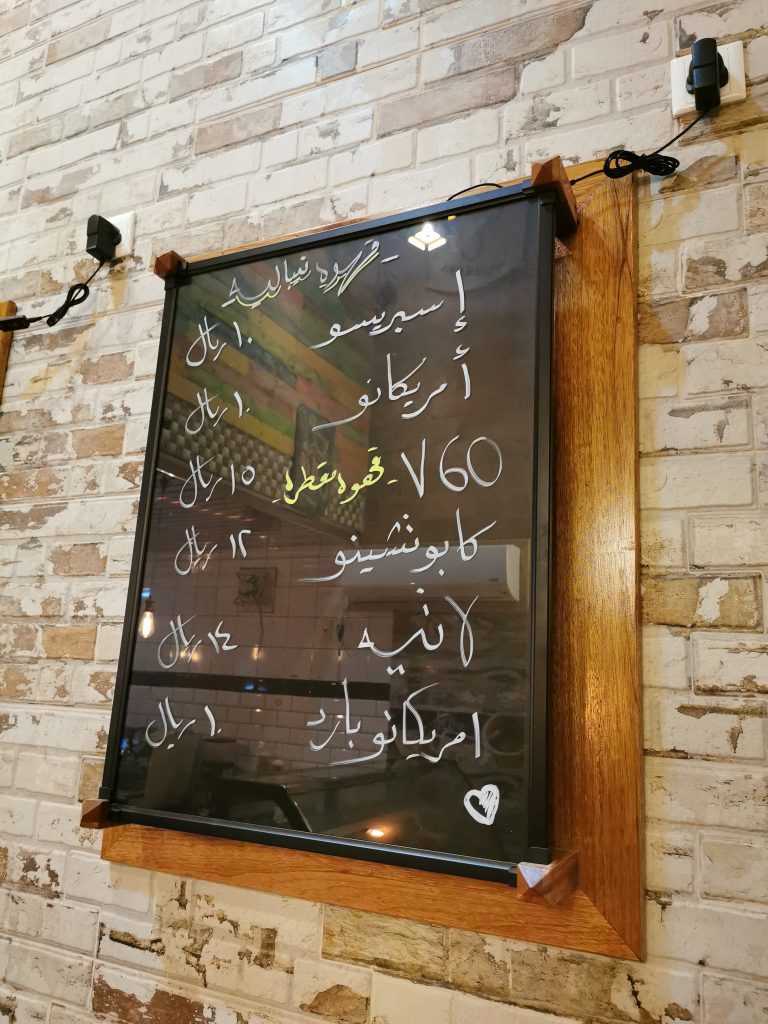 - قهوه نيباليه
إسبريسو ١٠ ريال
أمريكانو ١٠ ريال
V60 - قهوه مقطره - ١٥ ريال
كابوتشينو ١٢ ريال
لاتيه ١٤ ريال
امريكانو بارد ١٠ ريال